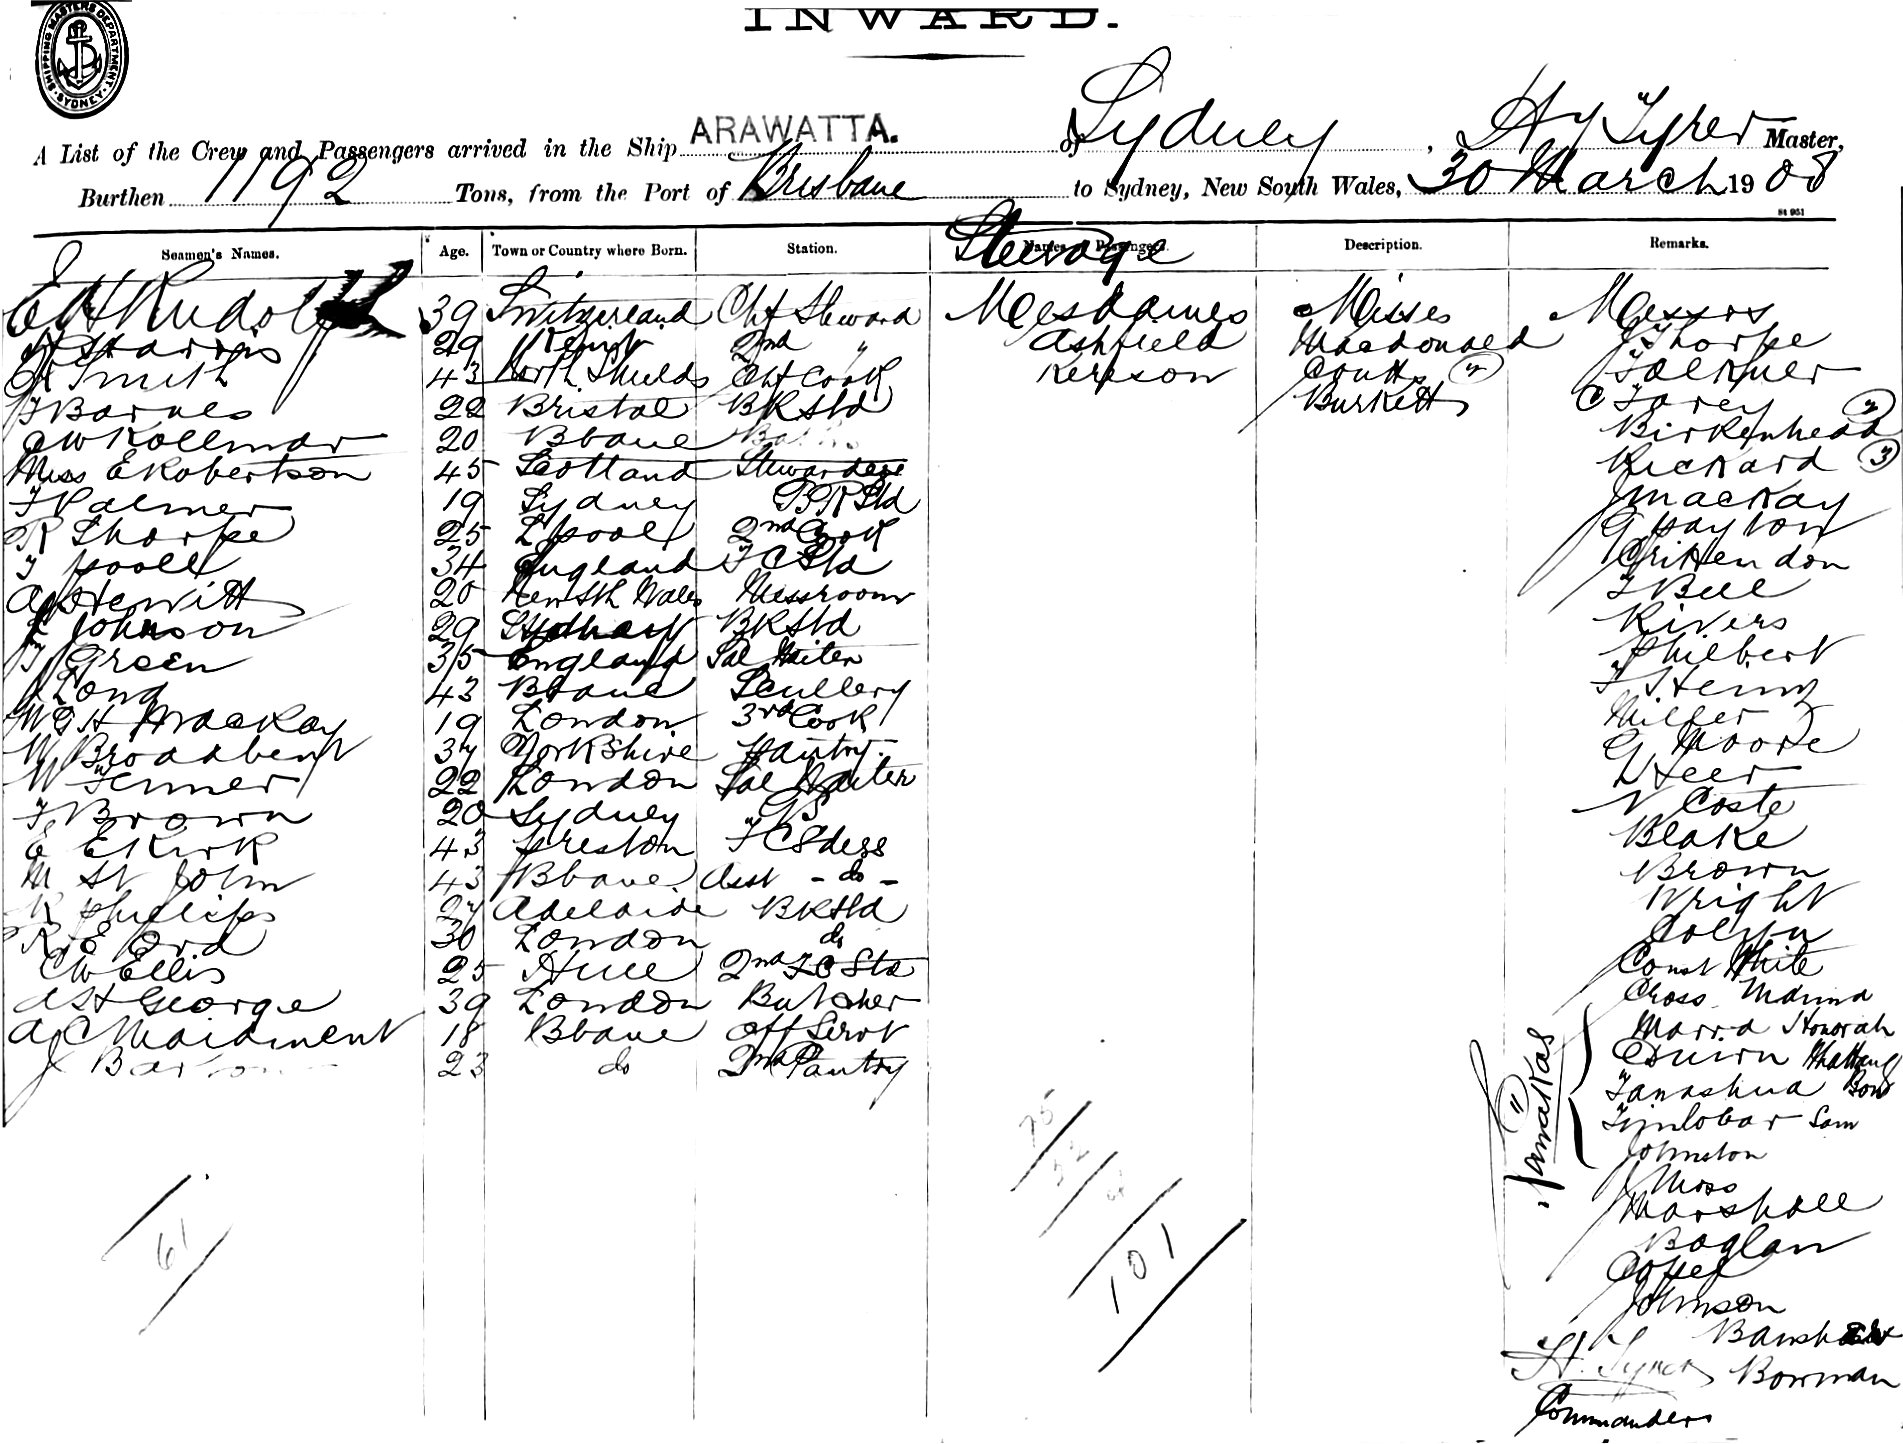 INWARD.
SHIPPING MASTERS DEPARTMENT. SYDNEY.
A List of the Crew and Passengers arrived in the Ship ARAWATTA. of Sydney, Hy Tyrer Master,
Burthen 1192 Tons, from the Port of Brisbane to Sydney, New South Wales, 30 March 1908
St 951
Seamen's Names. Age. Town or Country where Born. Station. Names of Passengers. Description. Remarks.
Steerage
E H Rudolf 39 Switzerland Chf Steward Mesdames Misses Messrs
Harris 29 Kent 2nd " Ashfield Macdonald J Thorpe
Smith 43 North Shields Chf Cook Kerrson Coutts (2) Falkner
F Barnes 22 Bristol BK Std Burkett C Farey
C W Kollmar 20 Bbane Birkenhead (2)
Miss E Robertson 45 Scotland Stewardess Rickard (3)
F Palmer 19 Sydney BK Std J Mackay
R Sharpe 25 Lpool 2nd Cook G Payton
T Poole 34 England F C Std Crittendon
A Hewitt 20 New Sth Wales Messroom F Bell
E Johnson 29 Sydney BK Std Rivers
T Green 35 England Sal Waiter Philbert
Long 43 Bbane Scullery F Henry
W G H Mackay 19 London 3rd Cook Miller
W Broadbent 37 Yorkshire Pantry G Moore
W Fenner 22 London Sal Waiter Heer
F Brown 20 Sydney N Coste
E E Kirk 43 Preston F C Sdess Blake
M St John 43 Bbane Asst - do - Brown
R Phillips 27 Adelaide BK Std Wright
R E Ord 30 London do
C W Ellis 25 Hull 2nd F C Std Const White
A St George 39 London Butcher Cross Marina
A C Maidment 18 Bbane Off Servt Marra Honorah
J 23 do 2nd Pantry
Kanakas "
Tanashua
Timlobar Sam
Johnston
J Moss
Marshall
Boglan
Johnson
Bowman
75
32
61
101
H. Tyrer
Commander